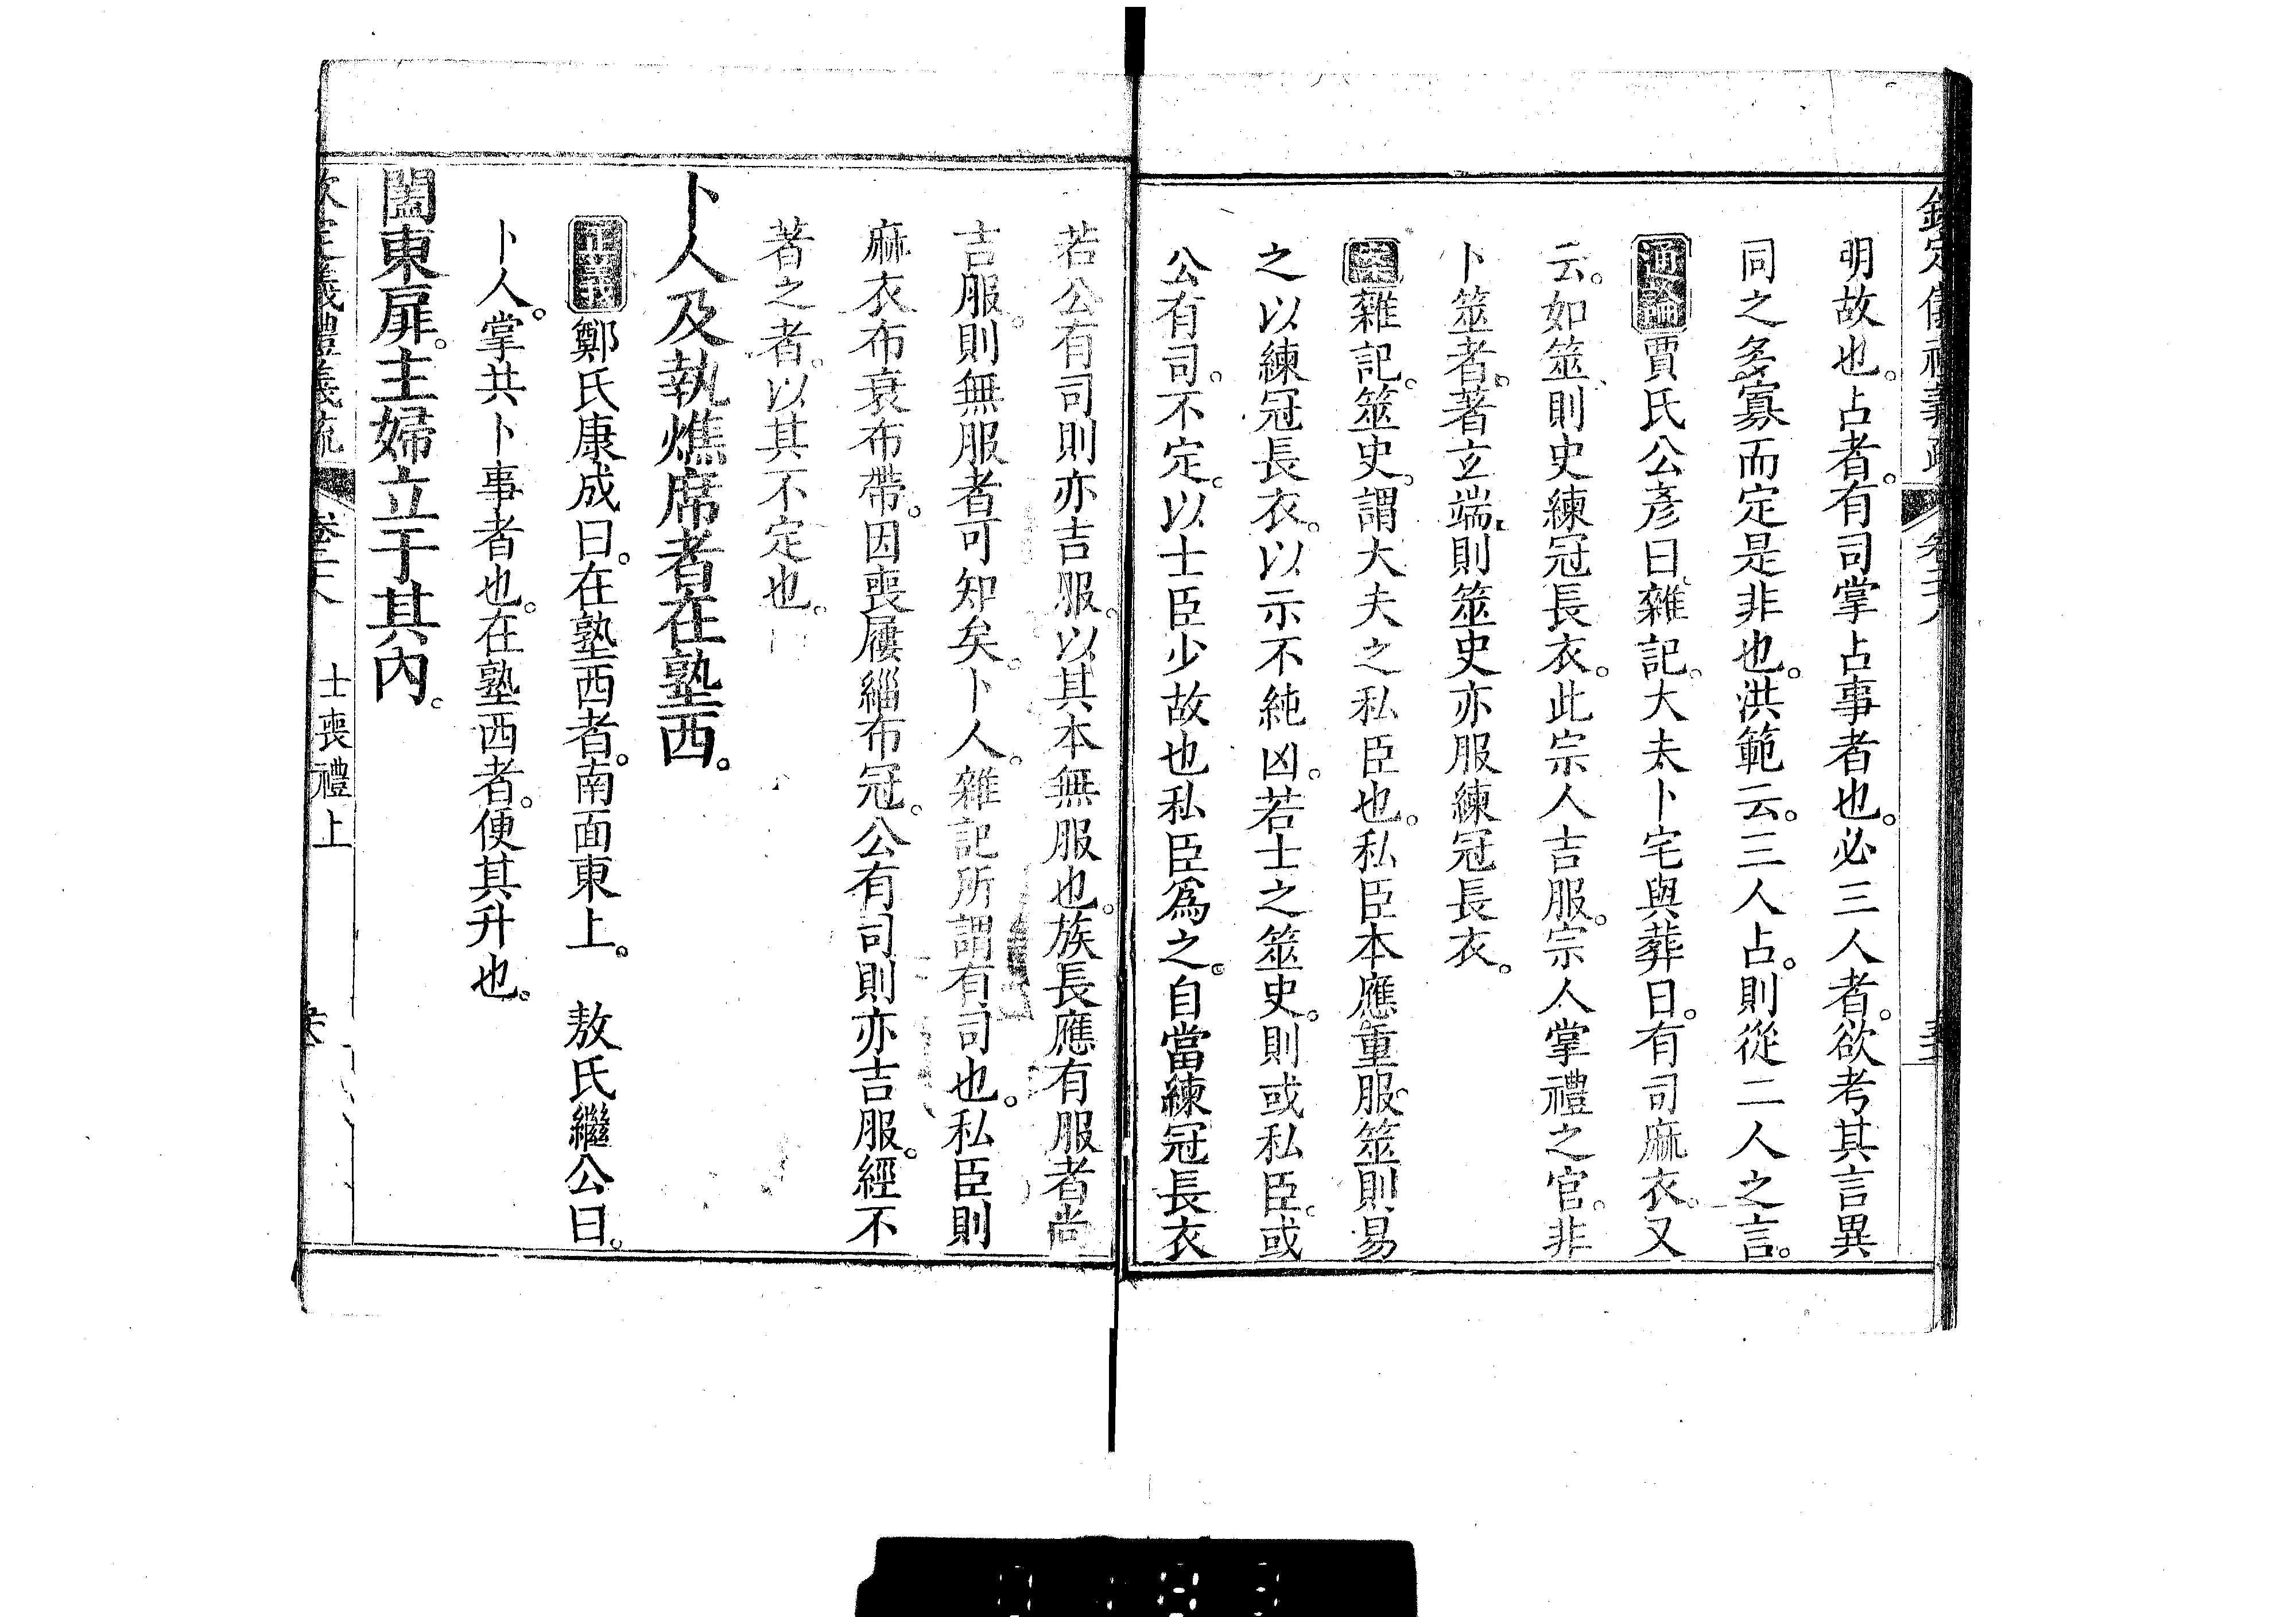 明故也。占者。有司掌占事者也。必三人者。欲考其言異
同之多寡而定是非也。洪範云。三人占。則從二人之言。
通論賈氏公彥曰。雜記。大夫卜宅與葬日。有司麻衣。又
云。如筮則史練冠長衣。此宗人吉服。宗人掌禮之官。非
卜筮者。著玄端則筮史亦服練冠長衣。
案雜記。筮史。謂大夫之私臣也。私臣本應重服。筮則易
之以練冠長衣。以示不純凶。若士之筮史。則或私臣。或
公有司。不定。以士臣少故也私臣爲之。自當練冠長衣
若公有司則亦吉服。以其本無服也。族長應有服者尚
吉服。則無服者可知矣。卜人。雜記所謂有司也。私臣則
麻衣布衰布帶。因喪屨緇布冠。公有司則亦吉服。經不
著之者。以其不定也。
卜人及執燋席者在塾西。
正義鄭氏康成曰。在塾西者。南面東上。 敖氏繼公曰。
卜人。掌共卜事者也。在塾西者。便其升也。
闔東扉。主婦立于其內。
士喪禮上